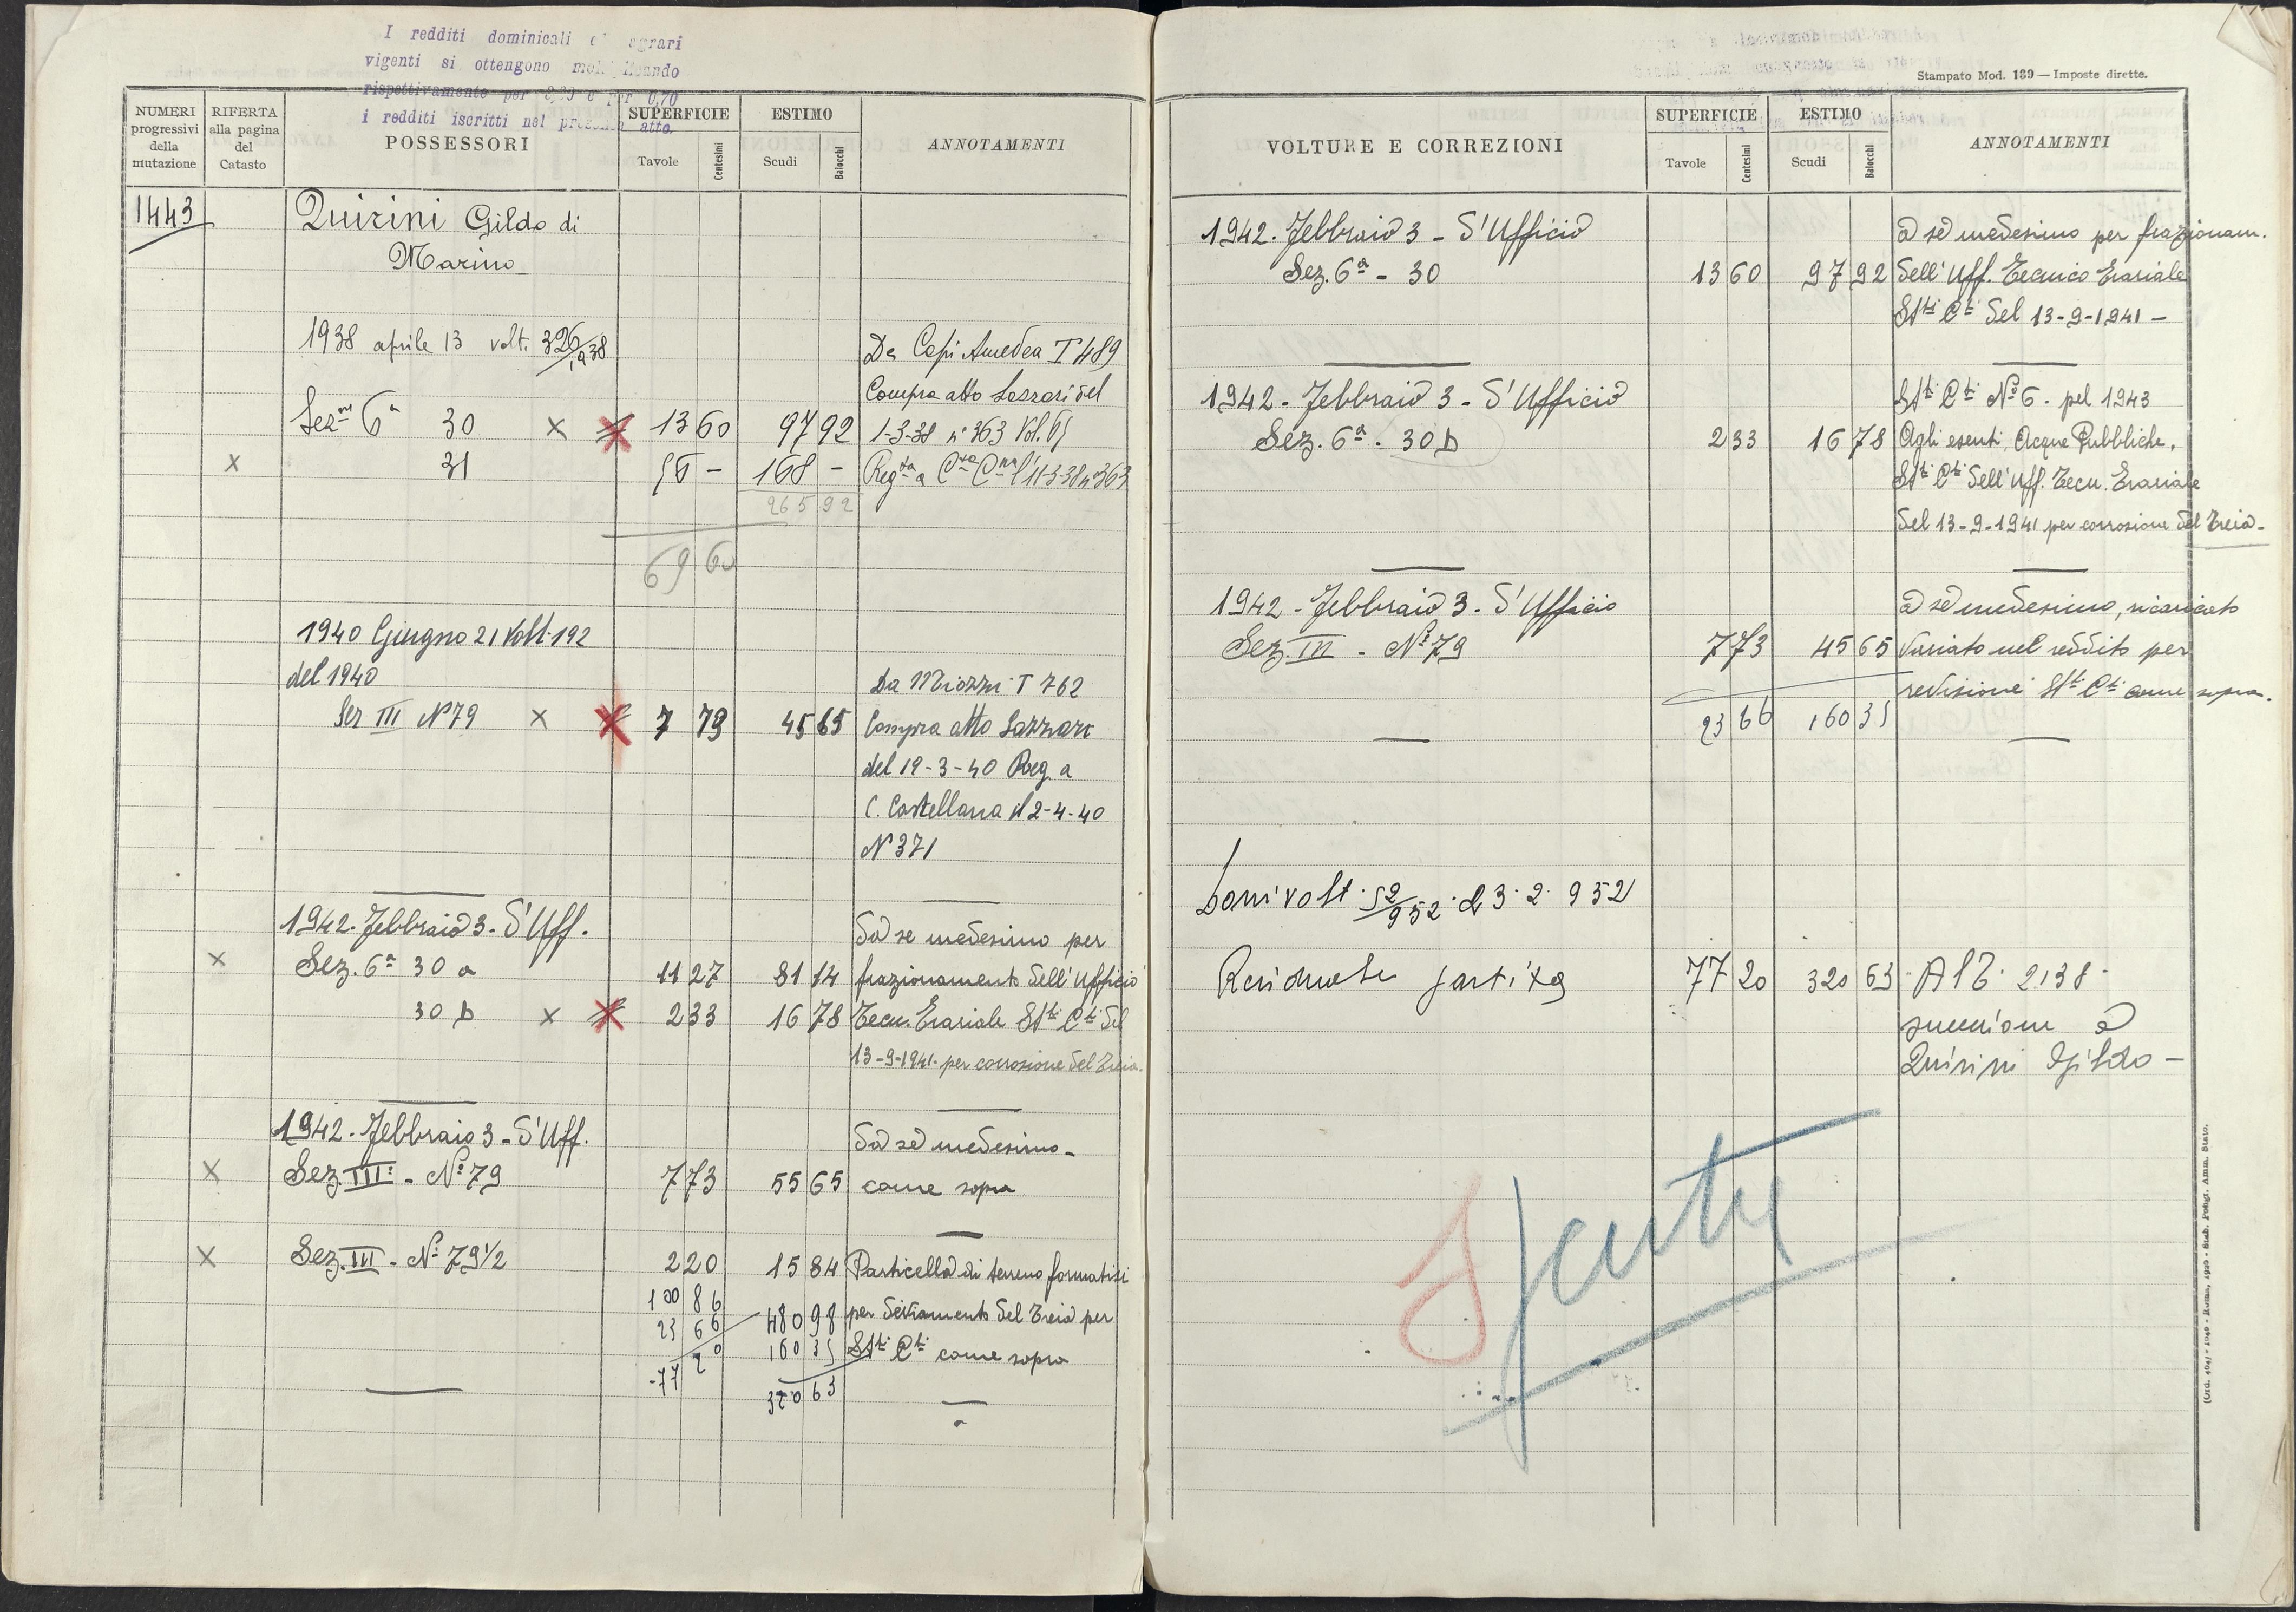 I redditi dominicali e agrari
vigenti si ottengono mol icando
rispettivamente per e per 0,70
i redditi iscritti nel presente atto.
NUMERI progressivi della mutazione
RIFERTA alla pagina del Catasto
POSSESSORI
SUPERFICIE
Tavole Centesimi
ESTIMO
Scudi Baiocchi
ANNOTAMENTI
1443 Quirini Gildo di
Marino
1938 aprile 13 volt. 326/1938 Da Capi Amedea T 489
Compra atto Lazzari del
Sezne 6a 30 x x 13 60 97 92 1-3-38 n° 363 Vol. 61
x 31 56 - 168 - Regta a Cta Cna l'11-3-38 n° 363
265 92
69 60
1940 Giugno 21 Volt. 192
del 1940 Da Miozzi T 762
Sez III N 79 x x 7 73 45 65 Compra atto Lazzari
del 19-3-40 Reg. a
C. Castellana il 2-4-40
N 371
1942. Febbraio 3. D'Uff. Da se medesimo per
x Sez. 6a 30 a 11 27 81 14 frazionamento dell'Ufficio
30 b x x 2 33 16 78 Tecn. Erariale Stti Cti del
13-9-1941. per corrosione del Treia.
1942. Febbraio 3 - D'Uff. Da sè medesimo -
x Sez. III: - N° 79 7 73 55 65 come sopra
x Sez. III - N° 79 1/2 2 20 15 84 Particella di terreno formatisi
100 86
480 98 per deviamento del Treia per
23 66
160 35 Stti Cti come sopra
77 20
320 63
Stampato Mod. 139 — Imposte dirette.
VOLTURE E CORREZIONI
SUPERFICIE
Tavole Centesimi
ESTIMO
Scudi Baiocchi
ANNOTAMENTI
1942. Febbraio 3 - D'Ufficio a sè medesimo per frazionam.
Sez. 6a - 30 13 60 97 92 dell'Uff. Tecnico Erariale
Stti Cti del 13-9-1941 -
1942 - Febbraio 3 - D'Ufficio Stti Cti N° 6. pel 1943
Sez. 6a - 30 b 2 33 16 78 Agli esenti, Acque Pubbliche,
Stti Cti dell'Uff. Tecn. Erariale
del 13-9-1941 per corrosione del Treia -
1942 - Febbraio 3 - D'Ufficio a sè medesimo, ricaricato
Sez. III - N° 79 7 73 45 65 variato nel reddito per
revisione Stti Cti come sopra.
23 66 160 35
volt. 52/952 23. 2. 952
Residuale partita 77 20 320 63 Al T. 2138 -
successione a
Quirini Gildo -